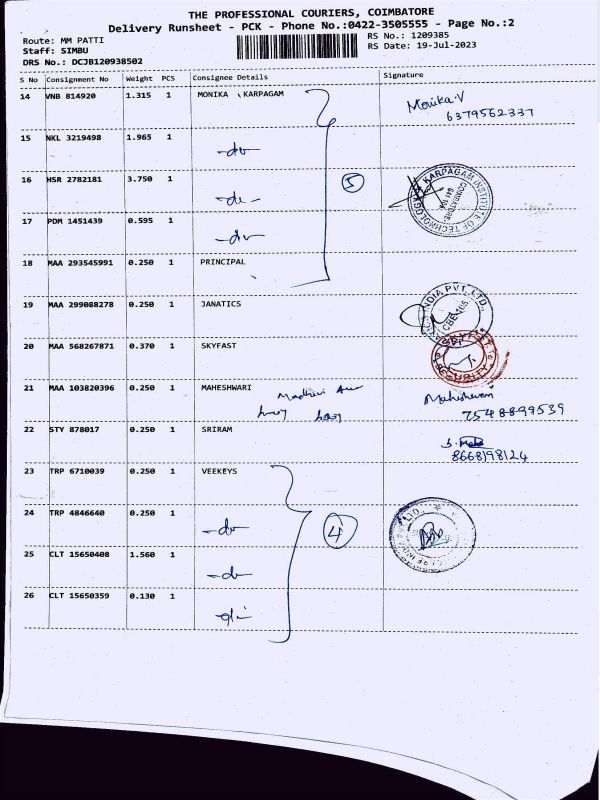 THE PROFESSIONAL COURIERS, COIMBATORE
Delivery Runsheet - PCK - Phone No.:0422-3505555 - Page No.:2
Route: MM PATTI
RS No.: 1209385
Staff: SIMBU
RS Date: 19-Jul-2023
DRS No.: DCJB120938502
S No Consignment No Weight PCS Consignee Details Signature
14 VNB 814920 1.315 1 MONIKA KARPAGAM Monika.V
6379562337
15 NKL 3219498 1.965 1
-do-
16 HSR 2782181 3.750 1
5
KARPAGAM INSTITUTE OF TECHNOLOGY
COIMBATORE
641 105
-do-
17 PDM 1451439 0.595 1
-do-
18 MAA 293545991 0.250 1 PRINCIPAL
19 MAA 299088278 0.250 1 JANATICS
INDIA PVT. LTD.,
20 MAA 568267871 0.370 1 SKYFAST
SECURITY
21 MAA 103820396 0.250 1 MAHESHWARI
Maheshwari
7548899539
22 STY 878017 0.250 1 SRIRAM
8668198124
23 TRP 6710039 0.250 1 VEEKEYS
24 TRP 4846640 0.250 1
-do-
4
LTD.,
25 CLT 15650408 1.560 1
-do-
26 CLT 15650359 0.130 1